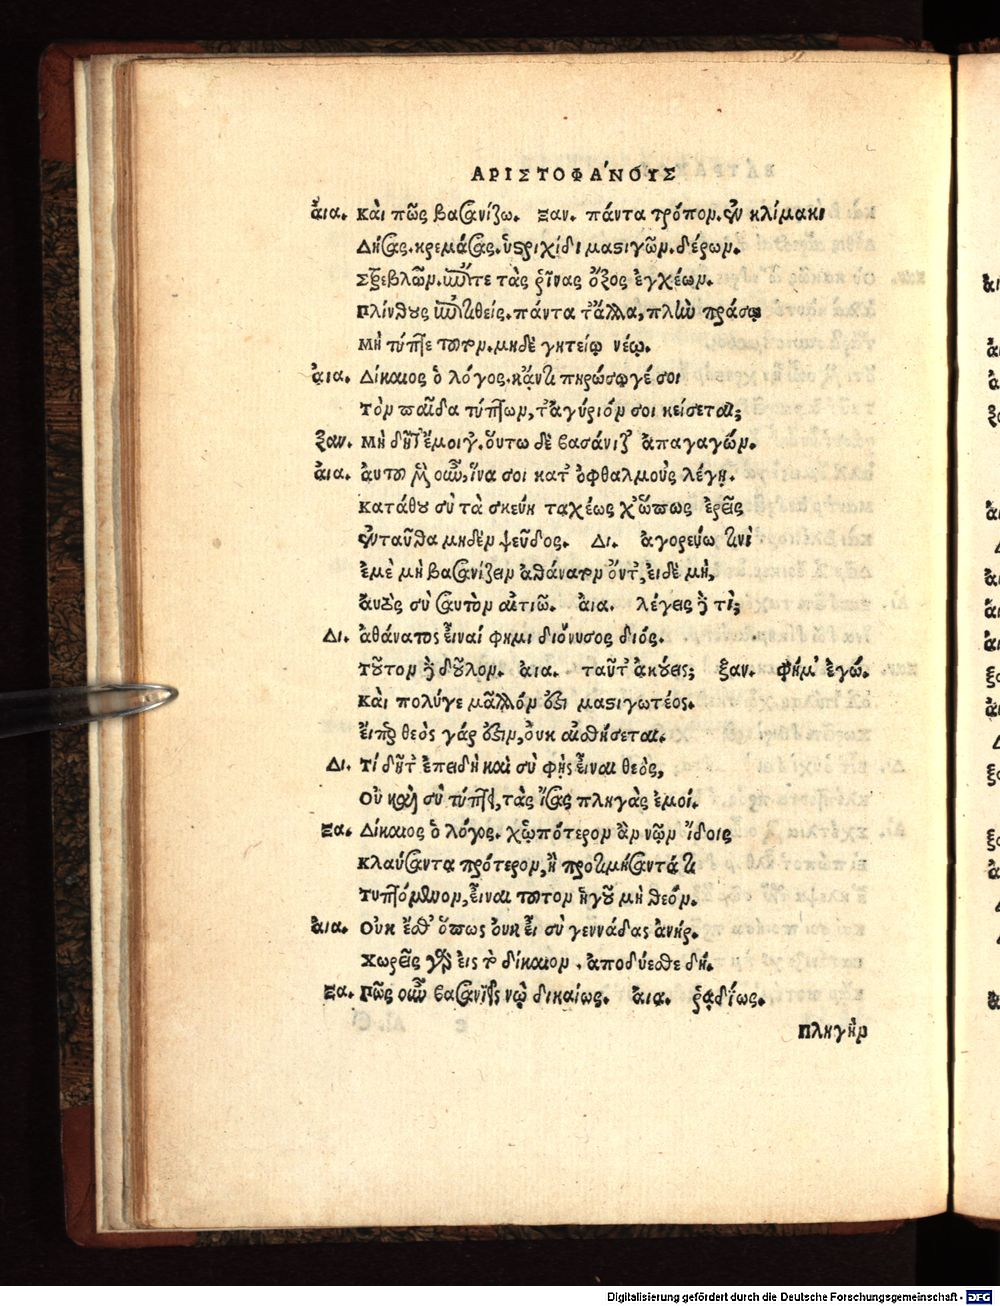 ΑΡΙΣΤΟΦΑΝΟΥΣ
ἄια. Καὶ πῶς βασανίζω. Ξαν. πάντα τρόπον. ἐν κλίμακι
Δήσας. κρεμάσας. ὑστριχίδι μαστιγῶν. δέρων.
Στρεβλῶν. ἔτι τε τὰς ῥῖνας ὄξος ἐγχέων.
Πλίνθους ἐπιτιθείς. πάντα τἄλλα, πλὴν πράσῳ
Μὴ τύπτε τοῦτον. μηδὲ γητείῳ νέῳ.
ἄια. Δίκαιος ὁ λόγος. κἄν τι πηρώσω γέ σοι
Τὸν παῖδα τύπτων, τἀργύριόν σοι κείσεται;
Ξαν. Μὴ δῆτ' ἔμοιγ'. οὕτω δὲ βασάνιζ' ἀπαγαγών.
ἄια. ἀυτοῦ μὲν οὖν, ἵνα σοι κατ' ὀφθαλμοὺς λέγῃ.
Κατάθου σὺ τὰ σκεύη ταχέως χὤπως ἐρεῖς
ἐνταῦθα μηδὲν ψεῦδος. Δι. ἀγορεύω τινὶ
ἐμὲ μὴ βασανίζειν ἀθάνατον ὄντ', εἰ δὲ μὴ,
ἀυτὸς σὺ σαυτὸν αἰτιῶ. ἄια. λέγεις δὲ τί;
Δι. ἀθάνατος εἶναί φημι διόνυσος διός.
Τοῦτον δὲ δοῦλον. ἄια. ταῦτ' ἀκούεις; ξαν. φήμ' ἐγώ.
Καὶ πολύ γε μᾶλλόν ἐστι μαστιγωτέος.
ἔιπερ θεὸς γάρ ἐστιν, ὀυκ αἰσθήσεται.
Δι. Τί δῆτ' ἐπειδὴ καὶ σὺ φῂς εἶναι θεὸς,
Οὐ καὶ σὺ τύπτῃ, τὰς ἴσας πληγὰς ἐμοί.
Ξα. Δίκαιος ὁ λόγος. χὠπότερον ἂν νῷν ἴδοις
Κλαύσαντα πρότερον, ἢ προτιμήσαντά τι
Τυπτόμενον, εἶναι τοῦτον ἡγοῦ μὴ θεόν.
ἄια. Οὐκ ἔσθ' ὅπως ὀυκ εἶ σὺ γεννάδας ἀνήρ.
Χωρεῖς γὰρ ἐις τὸ δίκαιον. ἀποδύεσθε δή.
Ξα. Πῶς οὖν βασανιεῖς νὼ δικαίως. ἄια. ῥᾳδίως.
Πληγὴν
Digitalisierung gefördert durch die Deutsche Forschungsgemeinschaft - DFG